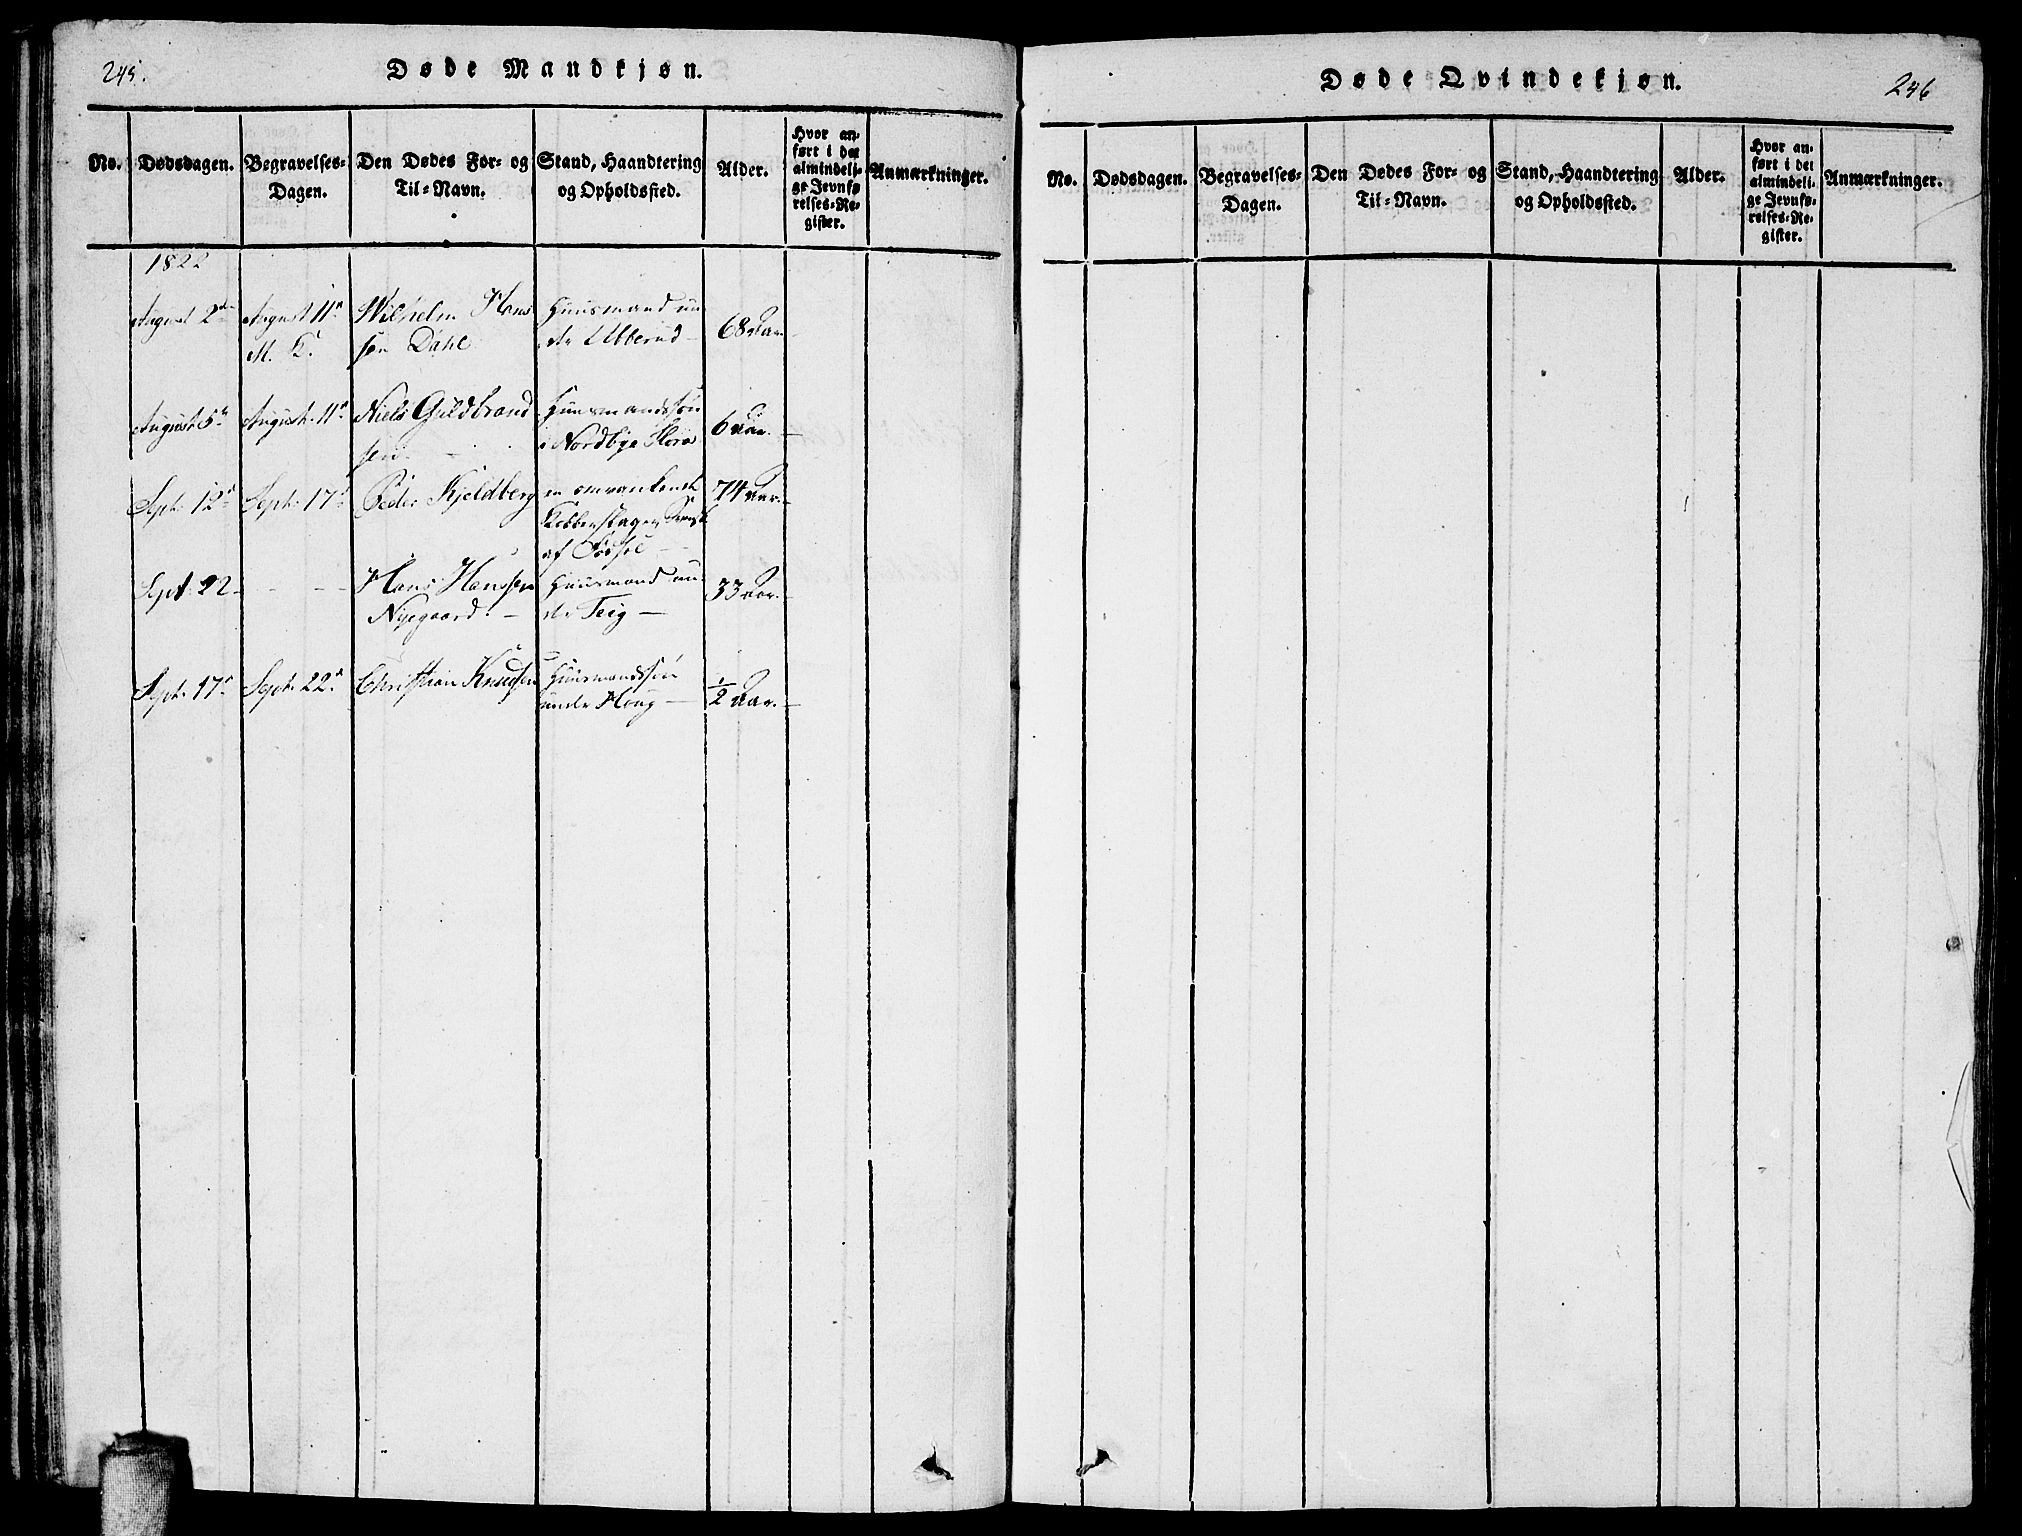 245.
Døde Mandkjøn.
No.
Dødsdagen.
Begravelses-
Dagen.
Den Dødes For- og
Til-Navn.
Stand, Haandtering
og Opholdssted.
Alder.
Hvor an-
ført i det
almindeli-
ge Jevnfø
relses-Re-
gister.
Anmærkninger.
1822
August 2den August 11te Wilhelm Hans Huusmand un 68 Aar
M. K. sen Dahl der Ulberud
August 5te August 11te Niels Guldbrand Huusmandssøn 6 Aar.
sen i Nordbye
Sept. 12te Sept. 17de Peder Kjeldberg en omvankende 74 Aar.
Kobberslager, Svensk
af Fødsel
Sept. 22 - - - Hans Hanssen Huusmand un- 33 Aar.
Nyegaard. - der Teig -
Sept. 17de Sept. 22de Christian Knudsen Huusmandssøn 1/2 Aar.
under Houg -
Døde Qvindekjøn.
246
No.
Dødsdagen.
Begravelses-
Dagen.
Den Dødes For- og
Til-Navn.
Stand, Haandtering
og Opholdssted.
Alder.
Hvor an-
ført i det
almindeli-
ge Jevnfø-
relses-Re-
gister.
Anmærkninger.